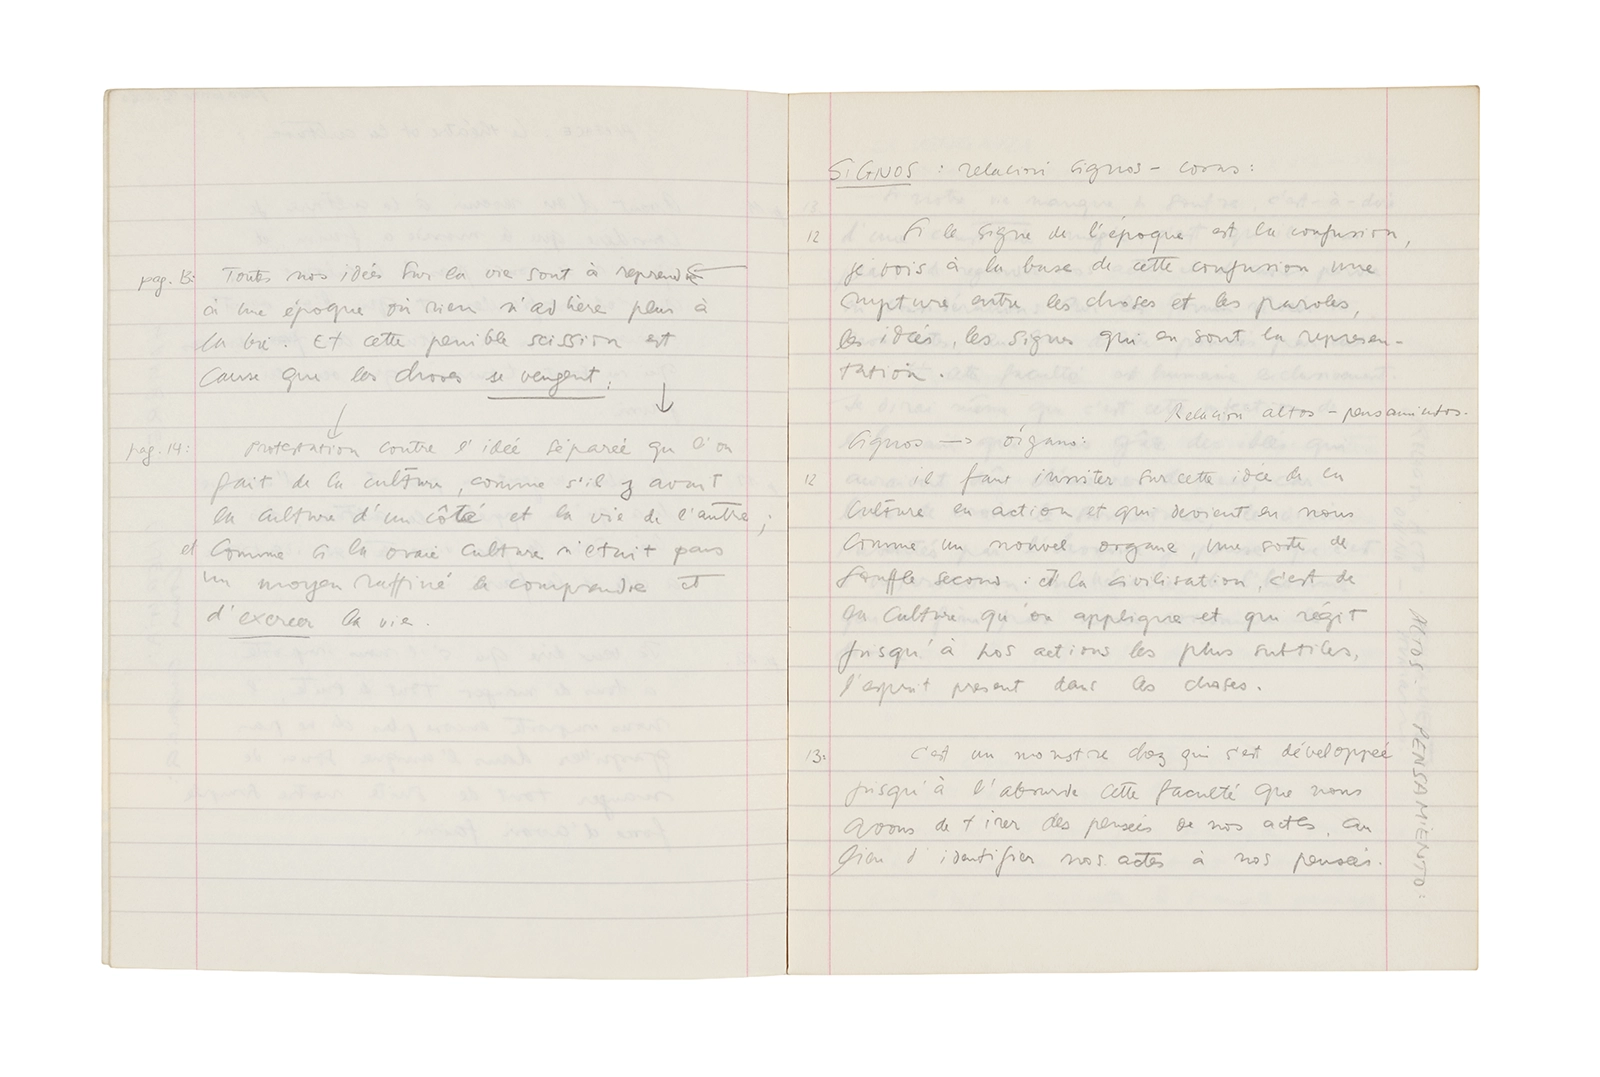 pag. 13: Toutes nos idées sur la vie sont à reprendre
à une époque où rien n'adhère plus à
la vie. Et cette penible scission est
cause que les choses se vengent;
pag. 14: Protestation contre l'idée séparée qu l'on
fait de la culture, comme s'il y avait
la culture d'un côté et la vie de l'autre;
et comme si la vraie culture n'etait pas
un moyen raffiné de comprendre et
d'exercer la vie.
SIGNOS: relación signos - cosas:
12 Si le signe de l'époque est la confusion,
je vois à la base de cette confusion une
rupture entre les choses et les paroles,
les idées, les signes qui en sont la represen-
tation.
Relación altos - pensamientos.
signos → órgano:
12 il faut insister sur cette idée de la
culture en action et qui devient en nous
comme un nouvel organe, une sorte de
souffle second: et la civilisation, c'est de
la culture qu'on applique et qui régit
jusqu'à nos actions les plus subtiles,
l'esprit present dans les choses.
13: c'est un monstre chez qui s'est développée
jusqu'à l'absurde cette faculté que nous
avons de tirer des pensées de nos actes, au
lieu d'identifier nos actes à nos pensées.
PENSAMIENTO: